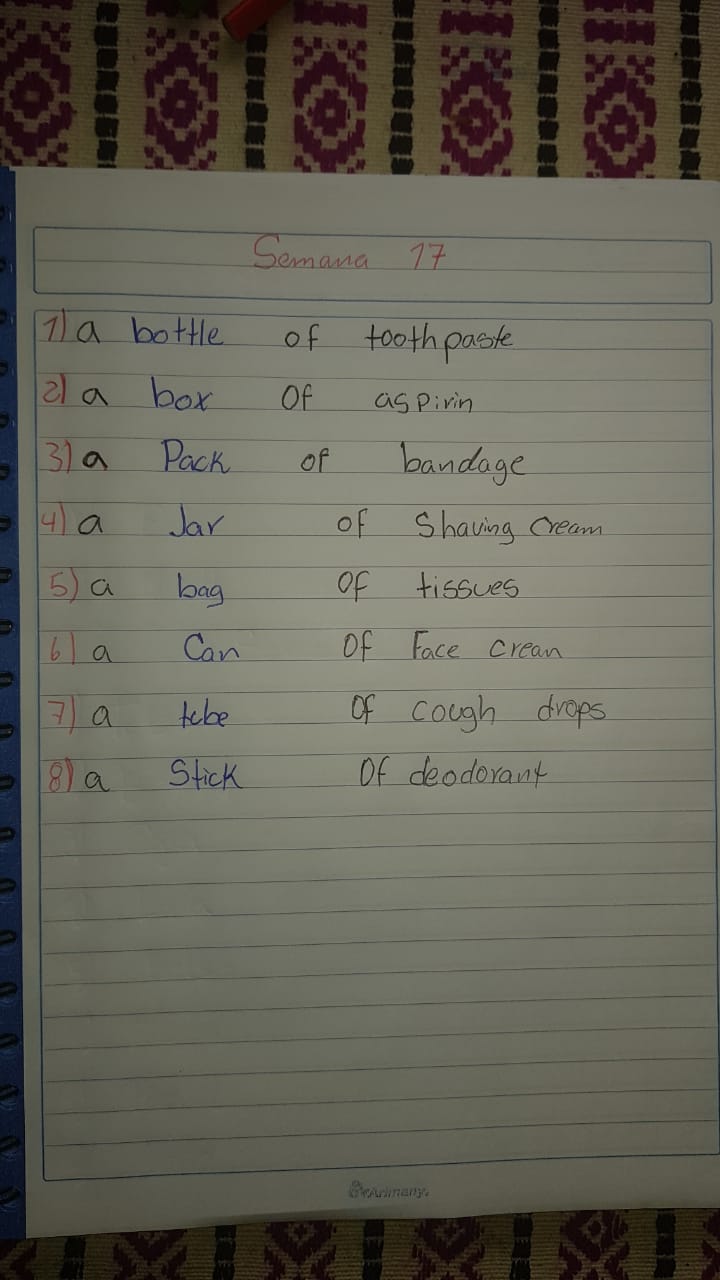 Semana 17
1) a bottle of toothpaste
2) a box Of aspirin
3) a Pack of bandage
4) a Jar of Shaving Cream
5) a bag Of tissues
6) a Can Of Face crean
7) a tube Of cough drops
8) a Stick Of deodorant